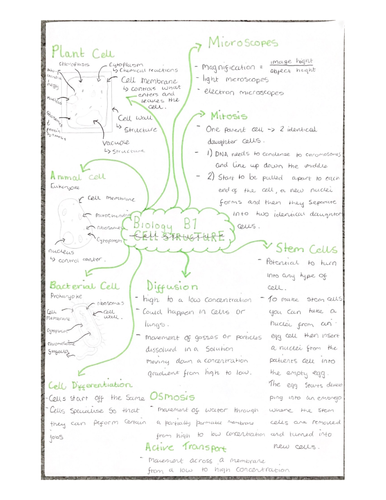 Plant Cell
Ribosomes
Cytoplasm
↳ Chemical reactions
Cell Membrane
↳ controls what
enters and
leaves the
cell.
Cell Wall
↳ Structure
Vacuole
↳ Structure
Microscopes
- Magnification = image height
object height
- light microscopes
- electron microscopes
Mitosis
- One parent cell → 2 identical
daughter cells.
- 1) DNA needs to condense to chromosomes
and line up down the middle
- 2) Start to be pulled apart to each
end of the cell, a new nuclei
forms and then they separate
into two identical daughter
cells.
Animal Cell
Eukaryote
Cell Membrane
Ribosomes
Cytoplasm
nucleus
↳ control center.
Biology B1
CELL STRUCTURE
Stem Cells
- Potential to turn
into any type of
cell.
- To make stem cells
you can take a
nuclei from an
egg cell then insert
a nuclei from the
patients cell into
the empty egg.
The egg starts develo
ping into an embryo
where the stem
cells are removed
and turned into
new cells.
Bacterial Cell
Prokaryote
Ribosomes
Cell
Membrane
Cell
Wall
Cytoplasm
Diffusion
- high to a low concentration
- Could happen in cells or
lungs.
- Movement of gasses or particles
dissolved in a solution
moving down a concentration
gradient from high to low.
Cell Differentiation
- Cells start off the same
- Cells specialise so that
they can perform certain
jobs.
Osmosis
- Movement of water through
a partially permable membrane
from high to low concentration
Active Transport
- Movement across a membrane
from a low to high concentration